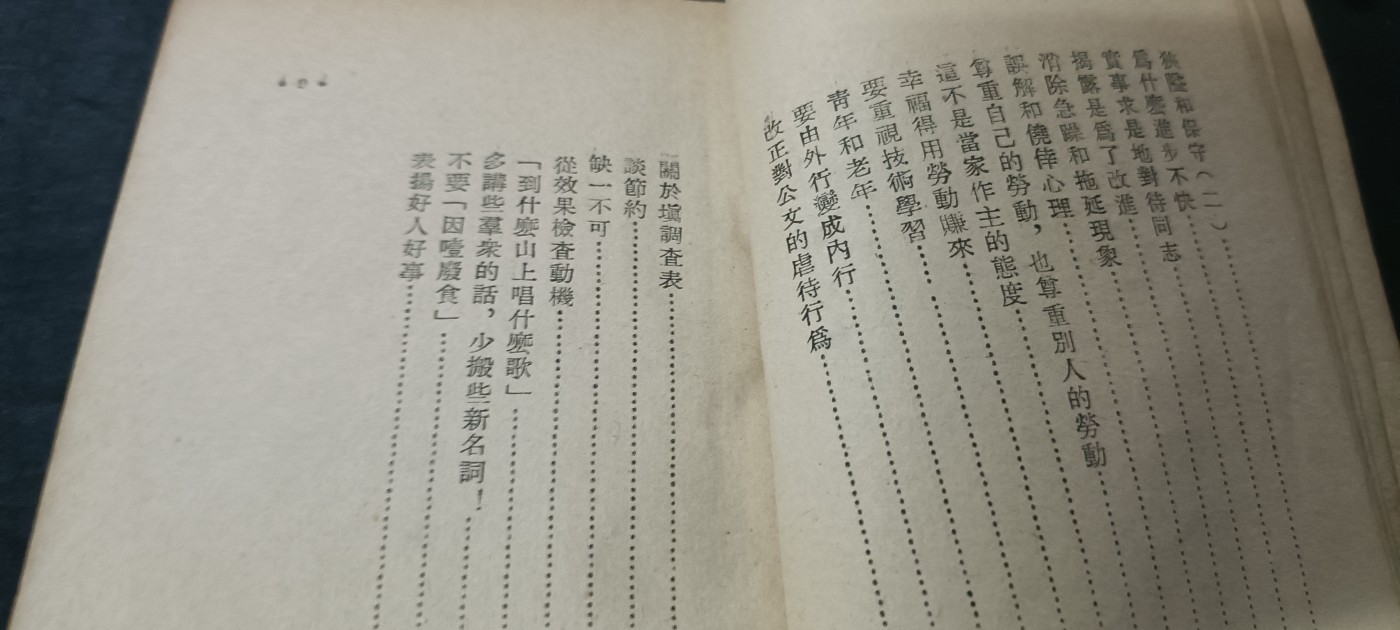 狹隘和保守(二)
爲什麽進步不快
實事求是地對待同志
揭露是爲了改進
消除急躁和拖延現象
誤解和僥倖心理
尊重自己的勞動，也尊重別人的勞動
這不是當家作主的態度
幸福得用勞動賺來
要重視技術學習
靑年和老年
要由外行變成內行
改正對公文的虐待行爲
關於塡調查表
談節約
缺一不可
從效果檢查動機
「到什麽山上唱什麽歌」
多講些羣衆的話，少搬些新名詞！
不要「因噎廢食」
表揚好人好事